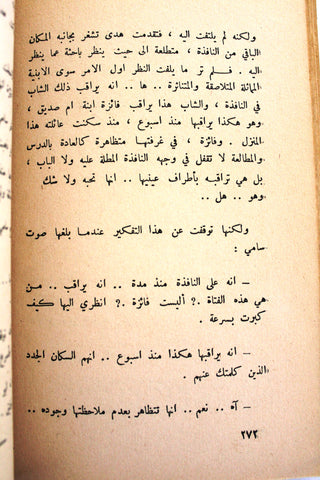 ولكنه لم يلتفت اليه ، فتقدمت هدى تشغر بجانبه المكان
الباقي من النافذة ، متطلعة الى حيث ينظر باحثة عما ينظر
اليه . فلم تر ما يلفت النظر اول الامر سوى الابنية
المائلة المتلاصقة والمتناثرة .. ها .. انه يراقب ذلك الشاب
في النافذة ، والشاب هذا يراقب فائزة ابنة ام صديق ،
وهو هكذا يراقبها منذ اسبوع ، منذ سكنت عائلته هذا
المنزل . وفائزة ، في غرفتها متظاهرة كالعادة بالدرس
والمطالعة لا تقفل في وجهه النافذة المطلة عليه ولا الباب ،
بل هي تراقبه بأطراف عينيها .. انها تحبه ولا شك
وهو .. هل ..
ولكنها توقفت عن هذا التفكير عندما بلغها صوت
سامي :
– انه على النافذة منذ مدة .. انه يراقب .. مـن
هي هذه الفتاة .? أليست فائزة .? انظري اليها كيف
كبرت بسرعة .
– انه يراقبها هكذا منذ اسبوع .. انهم السكان الجدد
الذين كلمتك عنهم .
– آه .. نعم .. انها تتظاهر بعدم ملاحظتها وجوده ..
٢٧٢